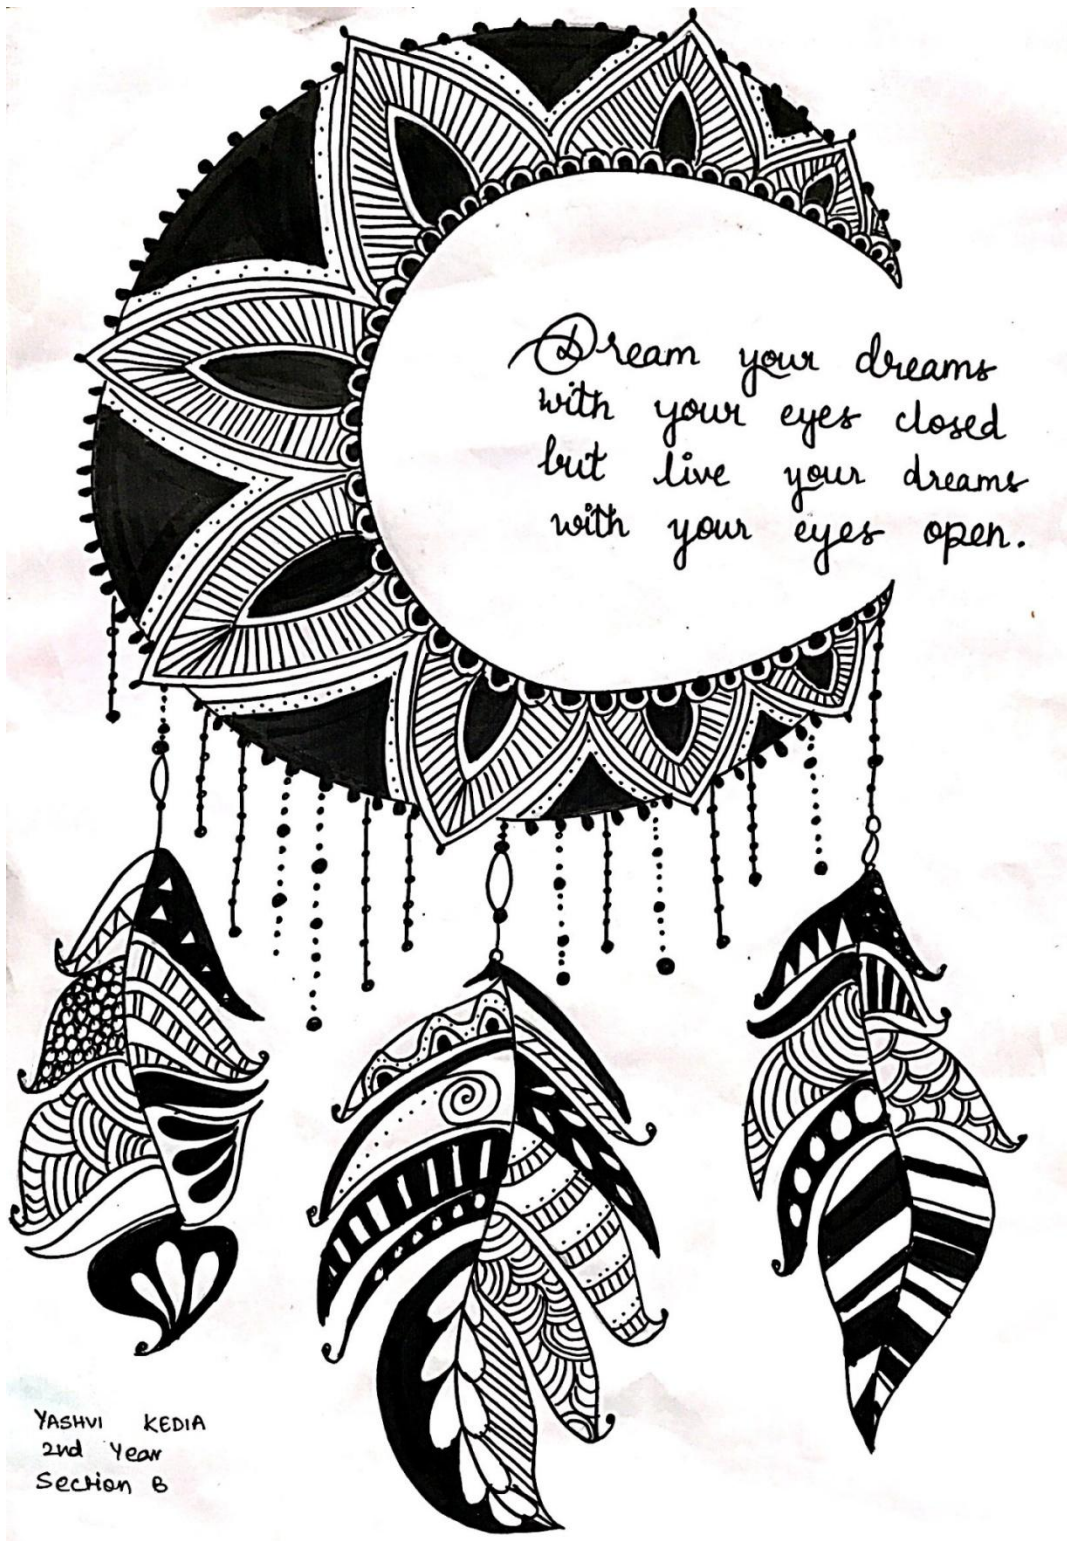 Dream your dreams
with your eyes closed
but live your dreams
with your eyes open.
YASHVI KEDIA
2nd Year
Section B